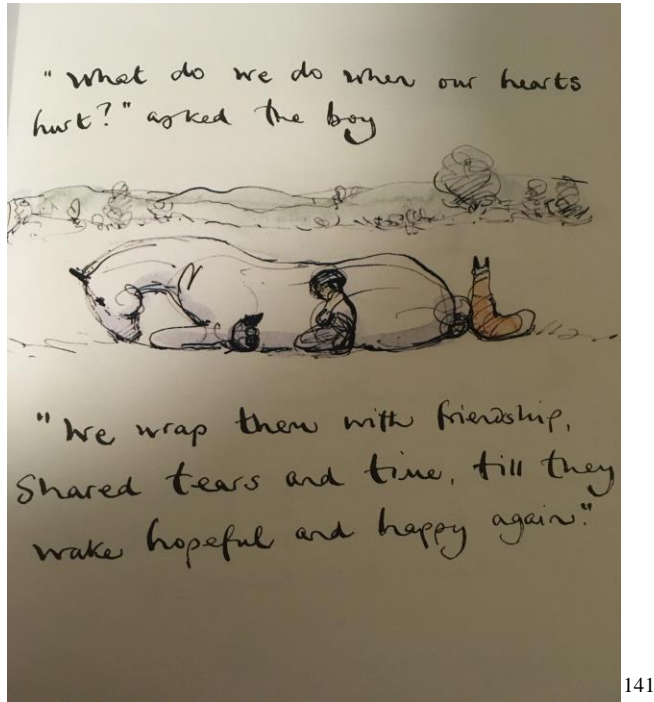 "What do we do when our hearts
hurt?" asked the boy
"We wrap them with friendship,
Shared tears and time, till they
wake hopeful and happy again."
141